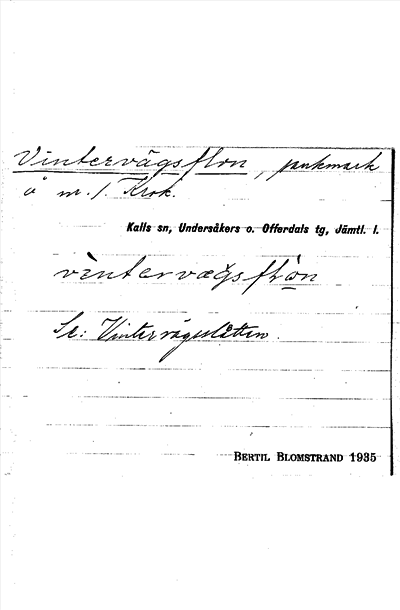 Vintervägsflon, sankmark
å m./. Krok.
Kalls sn, Undersåkers o. Offerdals tg, Jämtl. l.
vìntervægsflòn
Se: Vintervägslåtten.
BERTIL BLOMSTRAND 1935